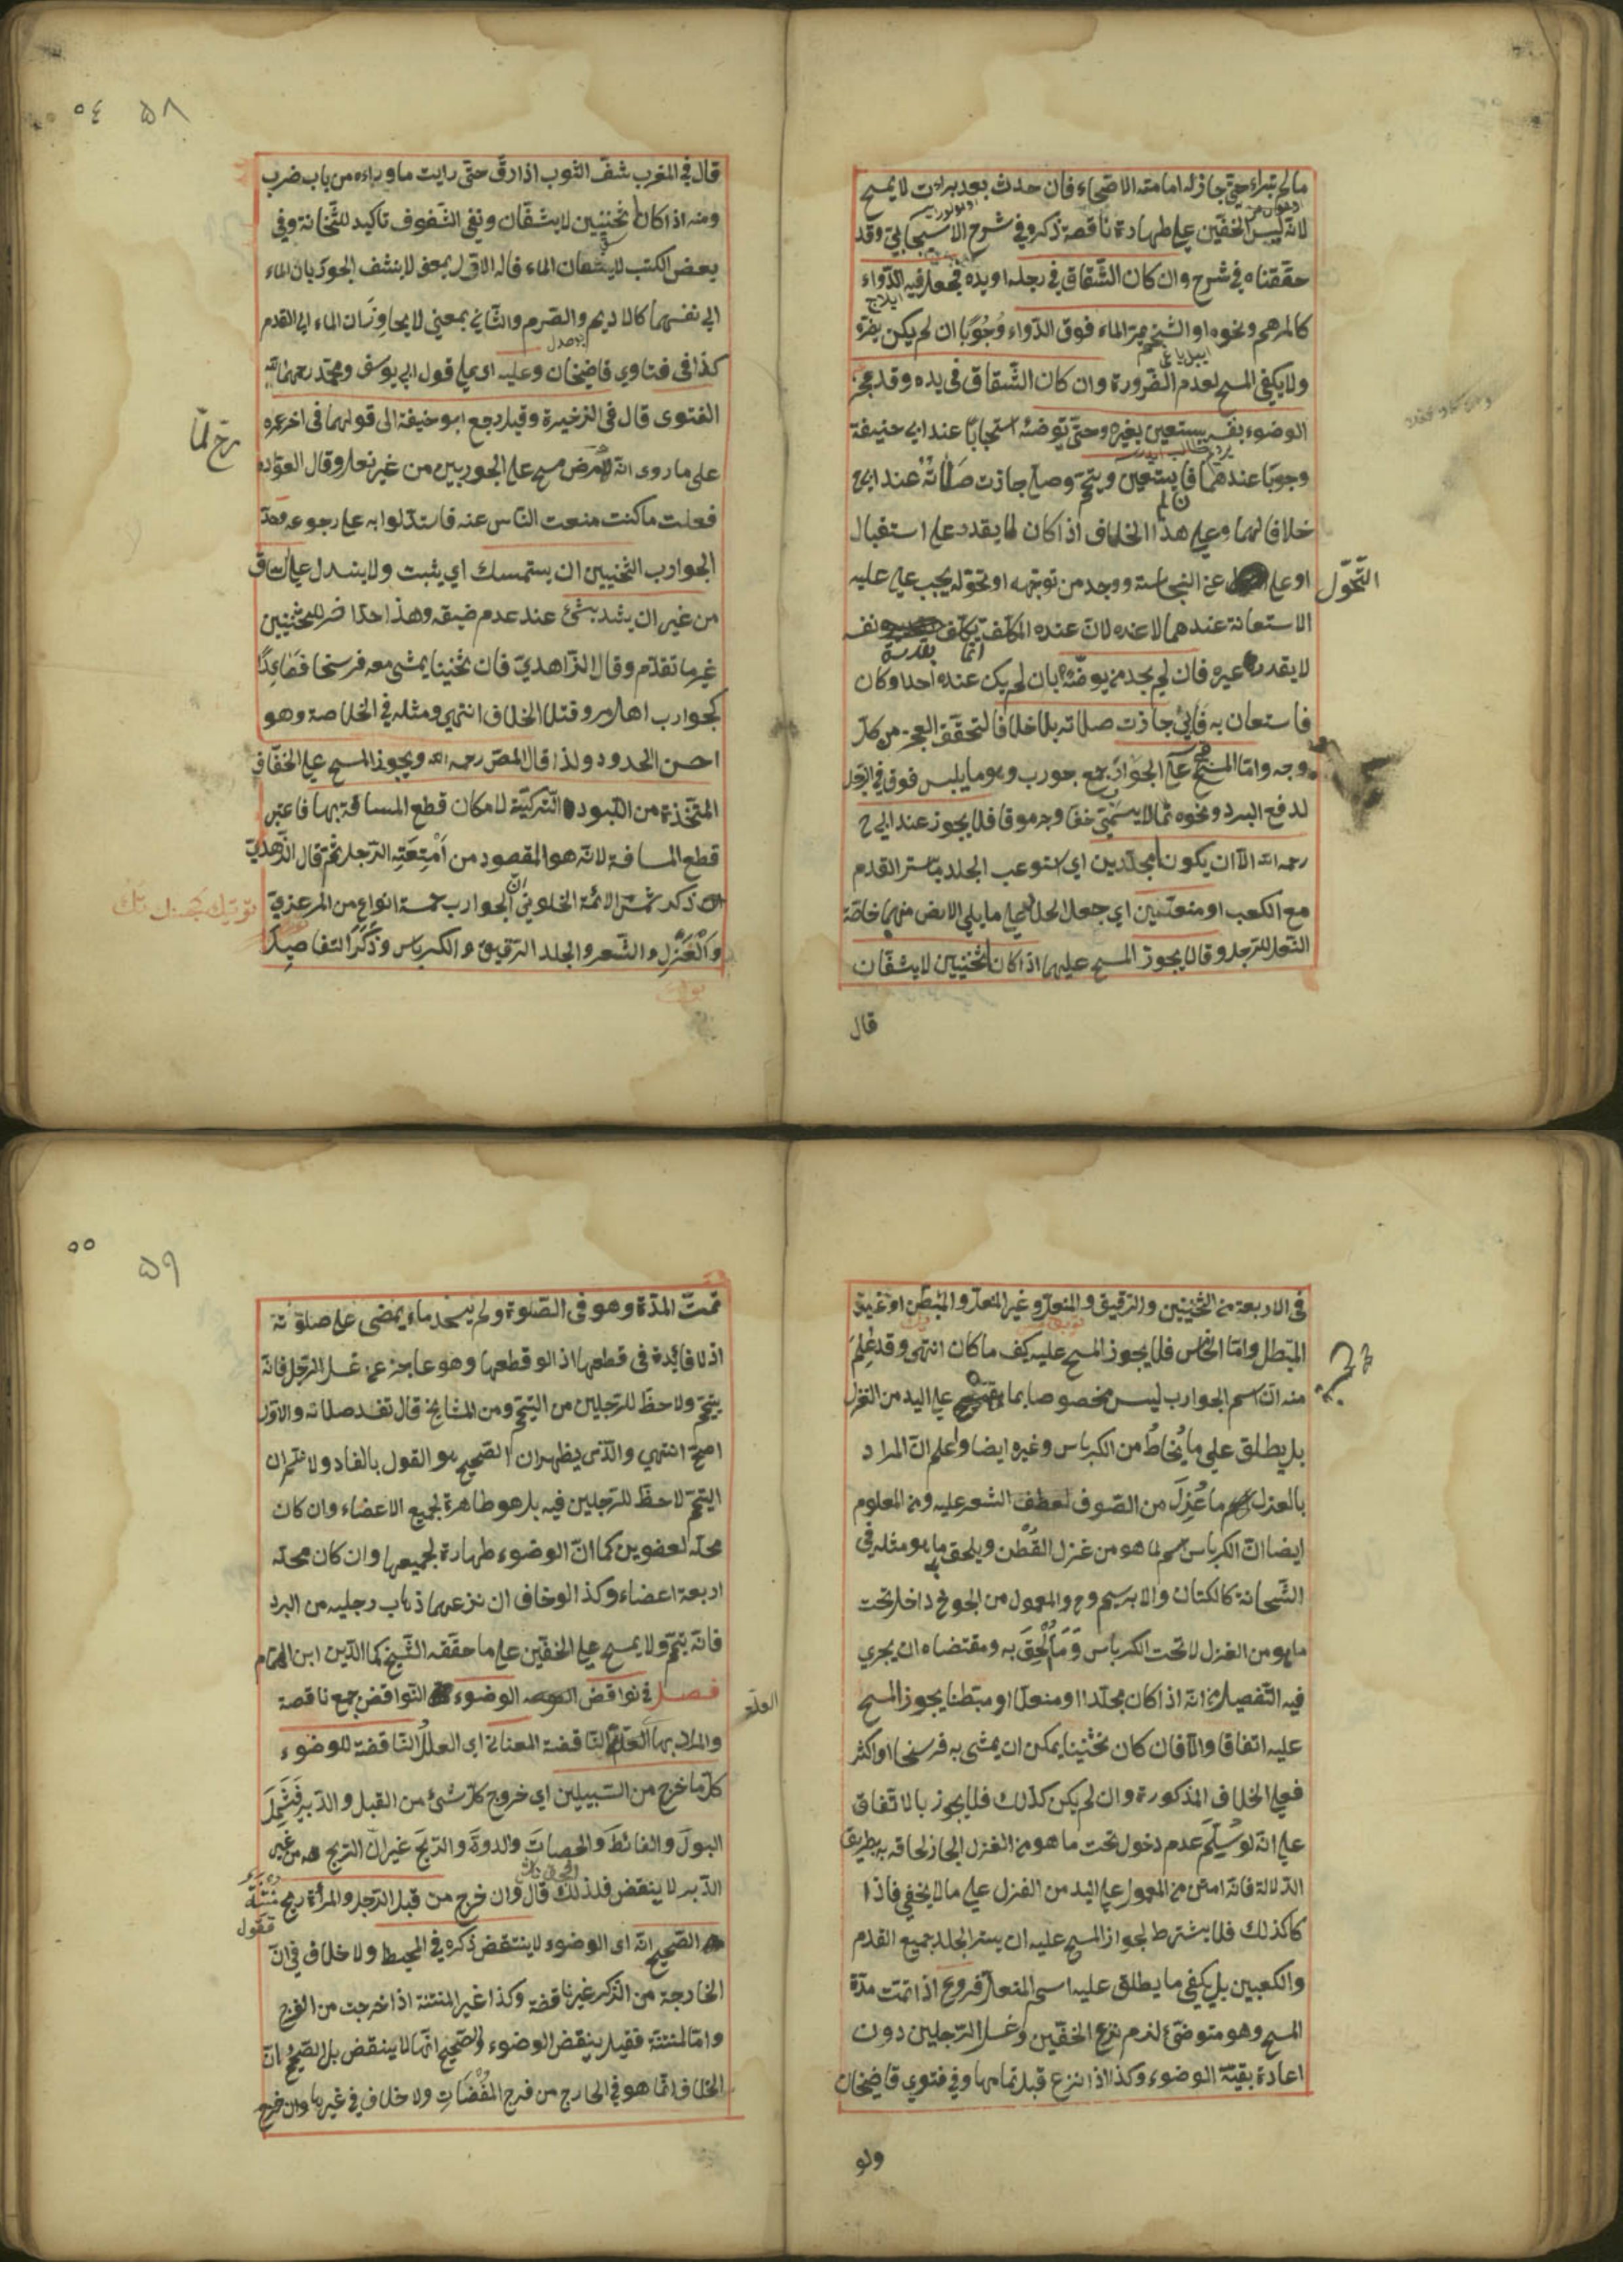 مالم تبراء حتى جاز له امامته الاصحاء فان حدث بعد برات لا يمسح
لانه لبس الخفين على طهارة ناقصة ذكره في شرح الاسبيجابي وقد
حققناه في شرح وان كان الشقاق في رجله او يده فجعل فيه الدواء
كالمرهم ونحوه او الشحم يمر الماء فوق الدواء وجوبا ان لم يكن يضره
ولا يكفي المسح لعدم الضرورة وان كان الشقاق في يده وقد عجز
الوضوء بنفسه يستعين بغيره حتى توضئه استحبابا عند ابي حنيفة
وجوبا عندهما فان لم يستعين وتيمم وصلى جازت صلاته عند ابي ح
خلافا لهما وعلى هذا الخلاف اذا كان لا يقدر على استقبال
او على التحول عن النجاسة ووجد من توجهه او تحوله يجب على عليه
الاستعانة عندهما لا عنده لان عنده المكلف انما يكلف بقدرة نفسه
لا بقدرة غيره فان لم يجد من يوضئه بان لم يكن عنده احد او كان
فاستعان به فابى جازت صلاته بلا خلاف لتحقق العجز من كل
وجه واما المسح على الجوارب جمع جورب وهو ما يلبس فوق في الرجل
لدفع البرد ونحوه مما لا يسمى خفا وجرموقا فلا يجوز عند ابي ح
رحمه الله الا ان يكون مجلدين اي استوعب الجلد ما ستر القدم
مع الكعب او منعلين اي جعل الجلد على ما يلي الارض منهما خاصة
النعل للرجل وقالا يجوز المسح عليهما اذا كان ثخنيين لا يشفان
قال
٥٨ ٥٤
قال في المغرب شف الثوب اذا رق حتى رايت ما وراءه من باب ضرب
ومنه اذا كانا ثخنيين لا يشفان ونفي الشفوف تاكيد للثخانة وفي
بعض الكتب لا ينشفان الماء فاله الاول بمعنى لا ينشف الجوربان الماء
الى نفسهما كالاديم والصرم والثاني بمعنى لا يجاوزان الماء الى القدم
كذا في فتاوي قاضيخان وعليه اى على قول ابي يوسف ومحمد رحمهما الله
الفتوى قال في الذخيرة وقيل رجع ابو حنيفة الى قولهما في اخر عمره
على ما روى انه لمرض مسح على الجوربين من غير نعل وقال العواده
فعلت ما كنت منعت الناس عنه فاستدلوا به على رجوعه وحد
الجوارب الثخنيين ان يستمسك اي يثبت ولا ينسدل على الساق
من غير ان يشد بشئ عند عدم ضيقه وهذا حد اخر للثخنيين
غير ما تقدم وقال الزاهدي فان ثخنينا يمشى معه فرسخا فصاعدا
كجوارب اهل مرو فتلا الخلاف انتهى ومثله في الخلاصة وهو
احسن الحدود ولذا قال المص رحمه الله ويجوز المسح على الخفاف
المتخذة من اللبود التركية لامكان قطع المسافة بها فاعتبر
قطع المسافة لانه هو المقصود من امتعته الرجل ثم قال الزاهدي
ذكر شمس الائمة الحلواني ان الجوارب خمسة انواع من المرعزي
والغزل والشعر والجلد الرقيق والكرباس وذكر التفاصيل
في الاربعة من الثخنيين والرقيق والمنعل وغير المنعل والمبطن او غير
المبطل واما الخامس فلا يجوز المسح عليه كيف ما كان انتهى وقد علم
منه ان اسم الجوارب ليس مخصوصا بما على اليد من الغزل
بل يطلق على ما يخاط من الكرباس وغيره ايضا واعلم ان المراد
بالغزل ما غزل من الصوف لعطف الشعر عليه ومن المعلوم
ايضا ان الكرباس اسم لما هو من غزل القطن ويلحق به ما هو مثله في
الثخانة كالكتان والابريسم وح والمعمول من الجوخ داخل تحت
ما هو من الغزل لا تحت الكرباس وما الحق به ومقتضاه ان يجري
فيه التفصيل انه اذا كان مجلدا او منعلا او مبطنا يجوز المسح
عليه اتفاقا والا فان كان ثخنينا يمكن ان يمشى به فرسخا او اكثر
فعلى الخلاف المذكورة وان لم يكن كذلك فلا يجوز بالاتفاق
على انه لو سلم عدم دخول تحت ما هو من الغزل الجاز لحاقه به بطريق
الدلالة فانه امتن من المعمول على اليد من الغزل على ما لا يخفى فاذا
كا كذلك فلا يشترط لجواز المسح عليه ان يستر الجلد جميع القدم
والكعبين بل يكفي ما يطلق عليه اسم المنعل فروع اذا تمت مدة
المسح وهو متوضئ لزم نزع الخفين وغسل الرجلين دون
اعادة بقية الوضوء وكذا اذا نزع قبل تمامها وفي فتوي قاضيخان
ولو
٥٩ ٥٥
تمت المدة وهو في الصلوة ولم يجد ماء يمضى على صلوته
اذ لا فائدة في قطعها اذ لو قطعها وهو عاجز عن غسل الرجل فانه
يتيمم ولا حظ للرجلين من التيمم ومن المشايخ قال تفسد صلاته والاول
اصح انتهى والذي يظهر ان الصحيح هو القول بالفساد ولا نسلم ان
التيمم لا حظ للرجلين فيه بل هو طاهرة لجميع الاعضاء وان كان
محله لعضوين كما ان الوضوء طهارة لجميعها وان كان محله
اربعة اعضاء وكذا لو خاف ان نزعهما ذهاب رجليه من البرد
فانه يتيمم ولا يمسح على الخفين على ما حققه الشيخ كمال الدين ابن الهمام
فصل في نواقض الوضوء النواقض جمع ناقصة
والمراد بها العلة الناقضة المعنا اى العلل الناقضة للوضوء
كل ما خرج من السبيلين اي خروج كل شئ من القبل والدبر فيشمل
البول والغائط والحصات والدودة والريح غير ان الريح من غير
الدبر لا ينقض فلذلك قال وان خرج من قبل الرجل والمرأة ريح منتنة
الصحيح انه اى الوضوء لا ينتقض ذكره في المحيط ولا خلاف في ان
الخارجة من الذكر غير ناقضة وكذا غير المنتنة اذا خرجت من الفرج
واما المنتنة فقيل ينقض الوضوء والصحيح انها لا ينقض بل الصحيح ان
الخلاف انما هو في الخارج من فرج المفضات ولا خلاف في غيرها وان خرج